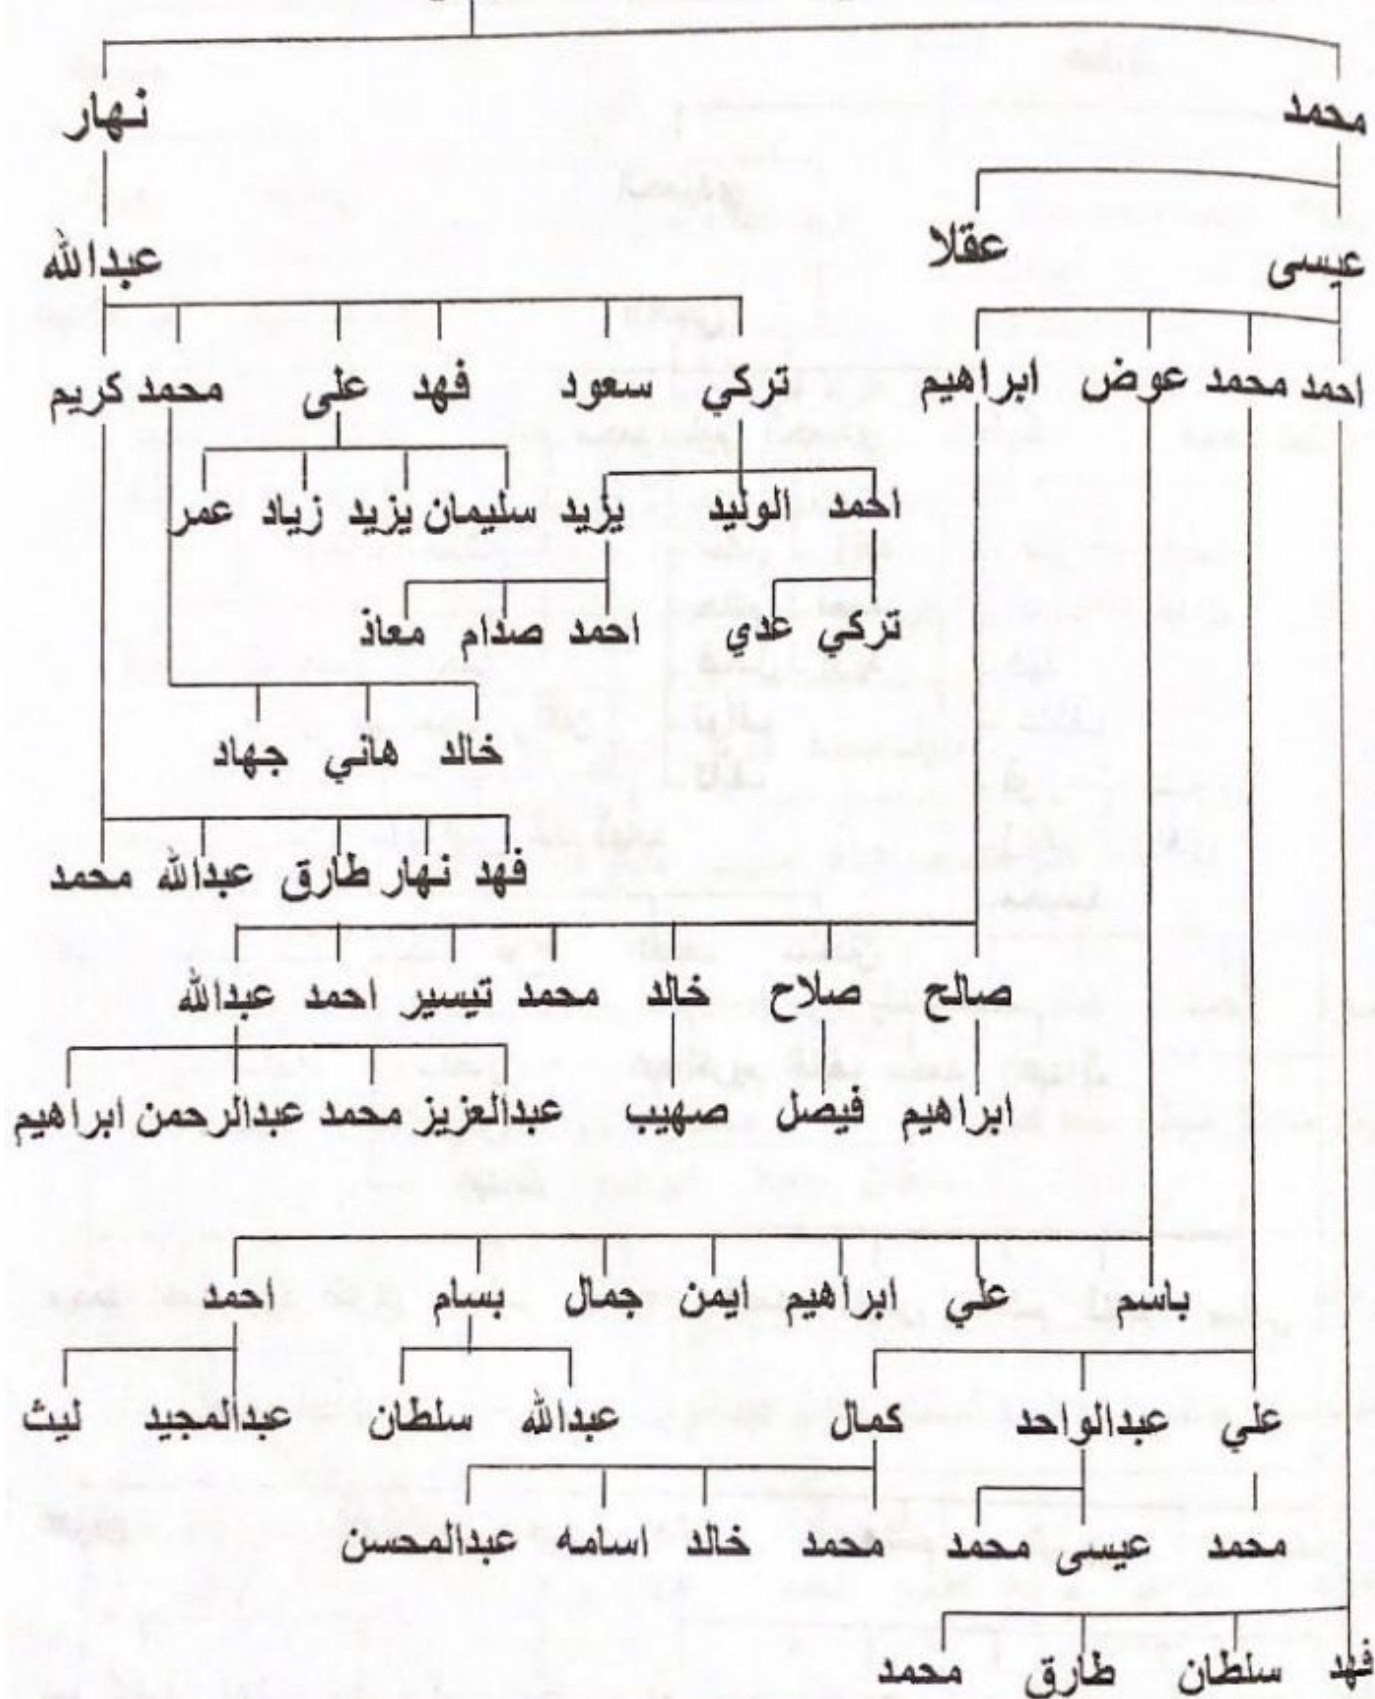 محمد نهار
عيسى عقلا عبدالله
احمد محمد عوض ابراهيم تركي سعود فهد على محمد كريم
احمد الوليد يزيد سليمان يزيد زياد عمر
تركي عدي احمد صدام معاذ
خالد هاني جهاد
فهد نهار طارق عبدالله محمد
صالح صلاح خالد محمد تيسير احمد عبدالله
ابراهيم فيصل صهيب عبدالعزيز محمد عبدالرحمن ابراهيم
باسم علي ابراهيم ايمن جمال بسام احمد
علي عبدالواحد كمال عبدالله سلطان عبدالمجيد ليث
محمد عيسى محمد محمد خالد اسامه عبدالمحسن
فهد سلطان طارق محمد